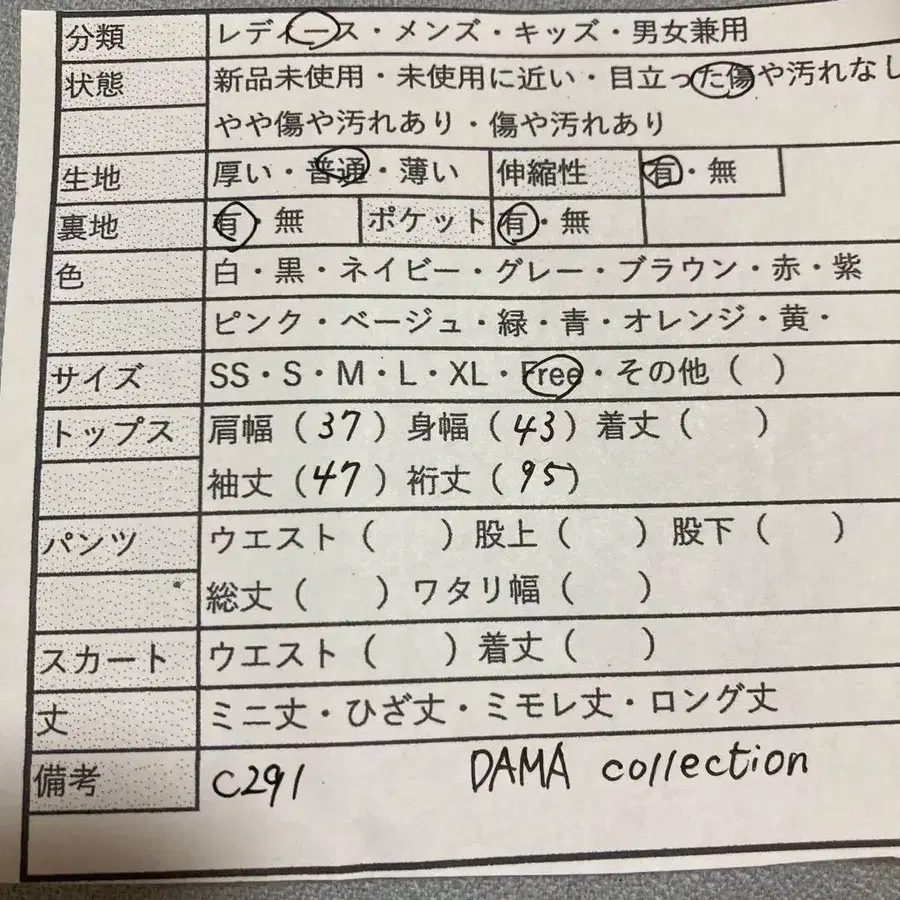 分類 レディース・メンズ・キッズ・男女兼用
状態 新品未使用・未使用に近い・目立った傷や汚れなし
やや傷や汚れあり・傷や汚れあり
生地 厚い・普通・薄い 伸縮性 有・無
裏地 有・無 ポケット 有・無
色 白・黒・ネイビー・グレー・ブラウン・赤・紫
ピンク・ベージュ・緑・青・オレンジ・黄・
サイズ SS・S・M・L・XL・Free・その他（ ）
トップス 肩幅（37）身幅（43）着丈（ ）
袖丈（47）裄丈（95）
パンツ ウエスト（ ）股上（ ）股下（ ）
総丈（ ）ワタリ幅（ ）
スカート ウエスト（ ）着丈（ ）
丈 ミニ丈・ひざ丈・ミモレ丈・ロング丈
備考 C291 DAMA collection